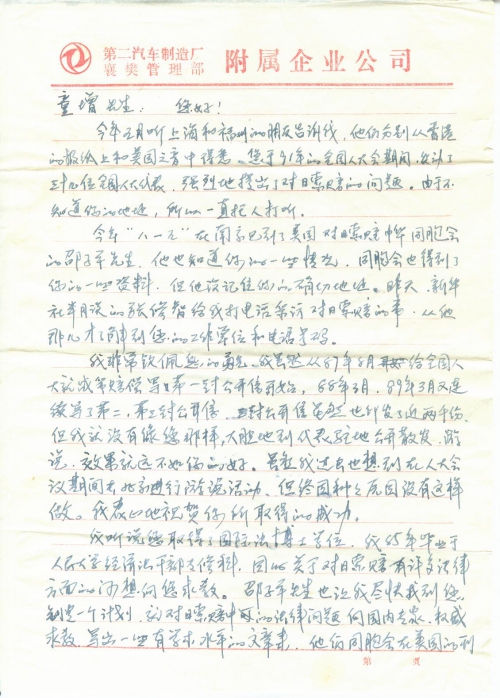 第二汽车制造厂
襄樊管理部
附属企业公司
童增先生： 您好！
今年三月听上海和福州的朋友告诉我，他们分别从香港
的报纸上和美国之音中得悉，您于91年的全国人大会期间，
全国人大代表，强烈地提出了对日索赔的问题。由于不
知道你的地址，所以一直托人打听。
今年“八一五”在南京见到了美国对日索赔中华同胞会
的邵子平先生，他也知道你的一些情况，同胞会也得到了
你的一些资料，但他没记住你的确切地址。昨天，新华
社半月谈的张
给我打电话
对日索赔的事，从他
那儿才了解到您的工作单位和电话号码。
我非常钦佩您的勇气。我虽然从87年8月开始给全国人
大
索赔
第一封公开信开始，88年3月，89年3月又连
续写了第二、第三封公开信，三封公开信虽然也印发了近两千份，
但我就没有像您那样，大胆地到代表驻地公开散发、游
说，效果就远不如你的好。虽然我过去也想到在人大会
议期间去北京进行游说活动，但终因种种原因没有这样
做。我衷心地祝贺你所取得的成功。
我听说您取得了国际法博士学位，我85年毕业于
人民大学经济法干部专修科，因此关于对日索赔有许多法律
方面的
想向您求教。邵子平先生也让我尽快找到您，
制定一个计划，就对日索赔中的法律问题向国内专家、权威
求教，写出一些有学术水平的文章来，他们同胞会在美国的刊
第 页